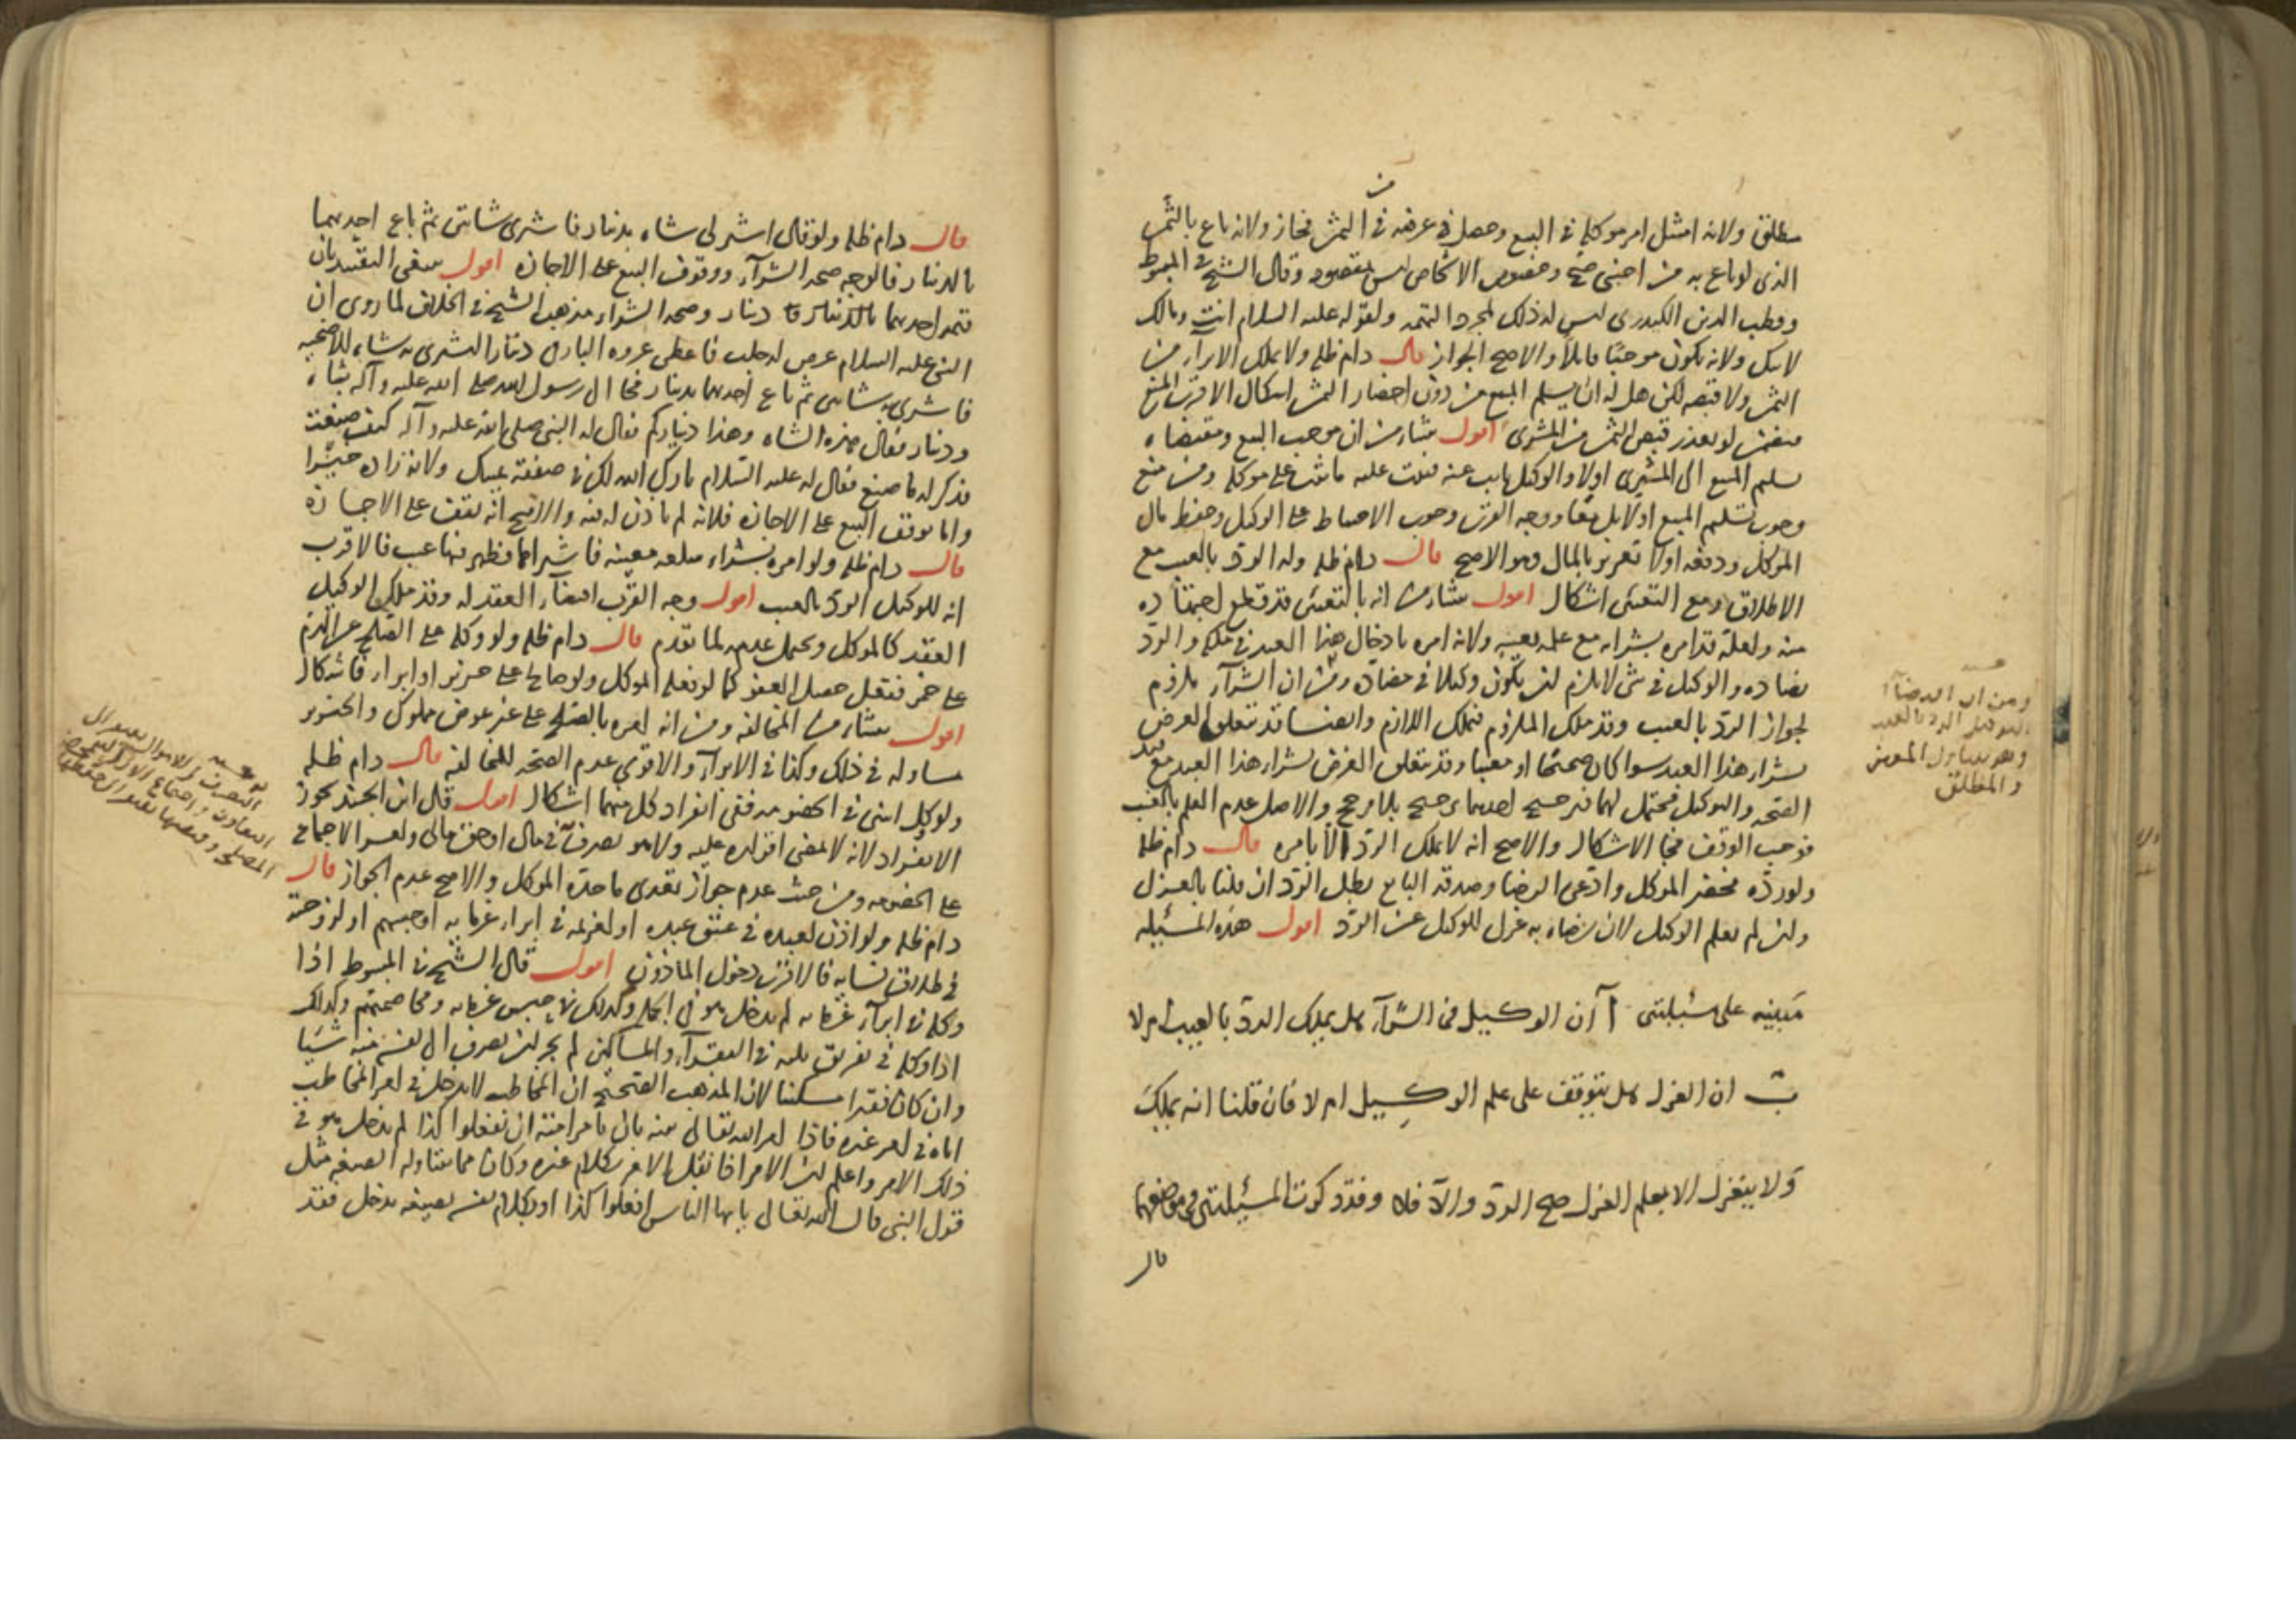 مطلق ولانه امتثل امر موكله في البيع وحصل في غرضه في الثمن فجاز ولانه باع بالثمن
الذي لو باع به من اجنبي صح وخصوص الاشخاص ليس بمقصود وقال الشيخ في المبسوط
وقطب الدين الكيدري ليس له ذلك لمجرد التهمه ولقوله عليه السلام انت ومالك
لابيك ولانه يكون موجبا قابلا والاصح الجواز قال دام ظله ولا يملك الابرآء من
الثمن ولا قبضه لكن هل له ان يسلم المبيع من دون احضار الثمن اشكال الاقرب المنع
فيضمن لو تعذر قبض الثمن من المشتري اقول ينشأ من ان موجب البيع ومقتضاه
تسليم المبيع الى المشتري اولا والوكيل نايب عنه فيثبت عليه ما يثبت على موكله ومن منع
وجوب تسليم المبيع اولا بل معا ووجه القرب وجوب الاحتياط على الوكيل وحفظ مال
الموكل ودفعه اولا تغرير بالمال وهو الاصح قال دام ظله وله الرد بالعيب مع
الاطلاق ومع التعيين اشكال اقول ينشأ من انه بالتعيين قد قطع اجتهاده
منه ولعله قد امره بشرائه مع علمه بعيبه ولانه امره بادخال هذا العبد في ملكه والرد
يضاده والوكيل في شئ لا يلزم ان يكون وكيلا في مضاده ومن ان الشرآء ملزوم
لجواز الرد بالعيب وقد ملك الملزوم فيملك اللازم وايضا قد يتعلق الغرض
بشراء هذا العبد سوا كان صحيحا او معيبا وقد يتعلق الغرض بشراء هذا العبد مع قيد
الصحه والتوكيل محتمل لهما فترجيح احدهما ترجيح بلا مرجح والاصل عدم العلم بالعيب
فوجب التوقف فجا الاشكال والاصح انه لا يملك الرد الا بامره قال دام ظله
ولو رده فحضر الموكل وادعى الرضا وصدقه البايع بطل الرد ان قلنا بالعزل
وان لم يعلم الوكيل لان رضاه به عزل للوكيل عن الرد اقول هذه المسئيله
مبنيه على مسئيلتين آ آن الوكيل في الشرآء هل يملك الرد بالعيب ام لا
ب ان العزل هل يتوقف على علم الوكيل ام لا فان قلنا انه يملك
ولا ينعزل الا بعلم العزل صح الرد والآ فلا وقد ذكرنا المسئيلتين في موضعهما
قال
ومن ان الرضا
التوكيل الرد بالعيب
وهو يتناول المعين
والمطلق
قال دام ظله ولو قال اشتر لي شاه بدينار فاشترى شاتين ثم باع احديهما
بالدينار فالوجه صحه الشرآء ووقوف البيع على الاجازه اقول ينبغي التقييد بان
قيمه احديهما بالدينار دينار وصحه الشراء مذهب الشيخ في الخلاف لما روى ان
النبي عليه السلام عرض له جلب فاعطى عروه البارقي دينارا ليشتري به شاه للاضحيه
فاشترى به شاتين ثم باع احديهما بدينار فجا الى رسول الله صلى الله عليه وآله بشاه
ودينار فقال هذه الشاه وهذا ديناركم فقال له النبي صلى الله عليه وآله كيف صنعت
فذكر له ما صنع فقال له عليه السلام بارك الله لك في صفقة يمينك ولانه زاده خيرا
واما توقف البيع على الاجازه فلانه لم ياذن له فيه والاصح انه يقف على الاجازه
قال دام ظله ولو امره بشراء سلعه معينه فاشتراها فظهر فيها عيب فالاقرب
انه للوكيل الرد بالعيب اقول وجه القرب اقتضآء العقد له وقد ملك الوكيل
العقد كالموكل ويحتمل عدمه لما تقدم قال دام ظله ولو وكله على الصلح عن الدم
على خمر ففعل حصل العفو كما لو فعله الموكل ولو صالح على خنزير او ابراء فاشكال
اقول ينشأ من المخالفه ومن انه امره بالصلح على غير عوض مملوك والخنزير
مساو له في ذلك وكذا في الابرآء والاقوى عدم الصحه للمخالفه قال دام ظله
ولو وكل اثنين في الخصومه ففي انفراد كل منهما اشكال اقول قال ابن الجنيد يجوز
الانفراد لانه لا يمضى اقراره عليه ولا هو تصرف في مال او حق مالي ولعسر الاجماع
على الخصومه ومن حيث عدم جواز تعدى ما حده الموكل والاصح عدم الجواز قال
دام ظله ولو اذن لعبده في عتق عبيده او لغريمه في ابراء غرمايه او حبسهم او لزوجته
في طلاق نسايه فالاقرب دخول الماذون اقول قال الشيخ في المبسوط اذا
وكله في ابرآء غرمايه لم يدخل هو في الجمله وكذلك في حبس غرمايه ومخاصمتهم وكذلك
اذا وكله في تفريق ثلثه في الفقرآء والمساكين لم يجز ان يصرف الى نفسه منه شيا
وان كان فقيرا مسكينا لان المذهب الصحيح ان المخاطب لا يدخل في امر المخاطب
اياه في امر غيره فاذا امر الله تعالى نبيه بان يأمر امته ان يفعلوا كذا لم يدخل هو في
ذلك الامر واعلم ان الامر اذا نقل الامر بكلام غيره وكان مما يتناوله الصيغه مثل
قول النبي قال الله تعالى يا ايها الناس افعلوا كذا او بكلام نفسه بصيغه يدخل فقد